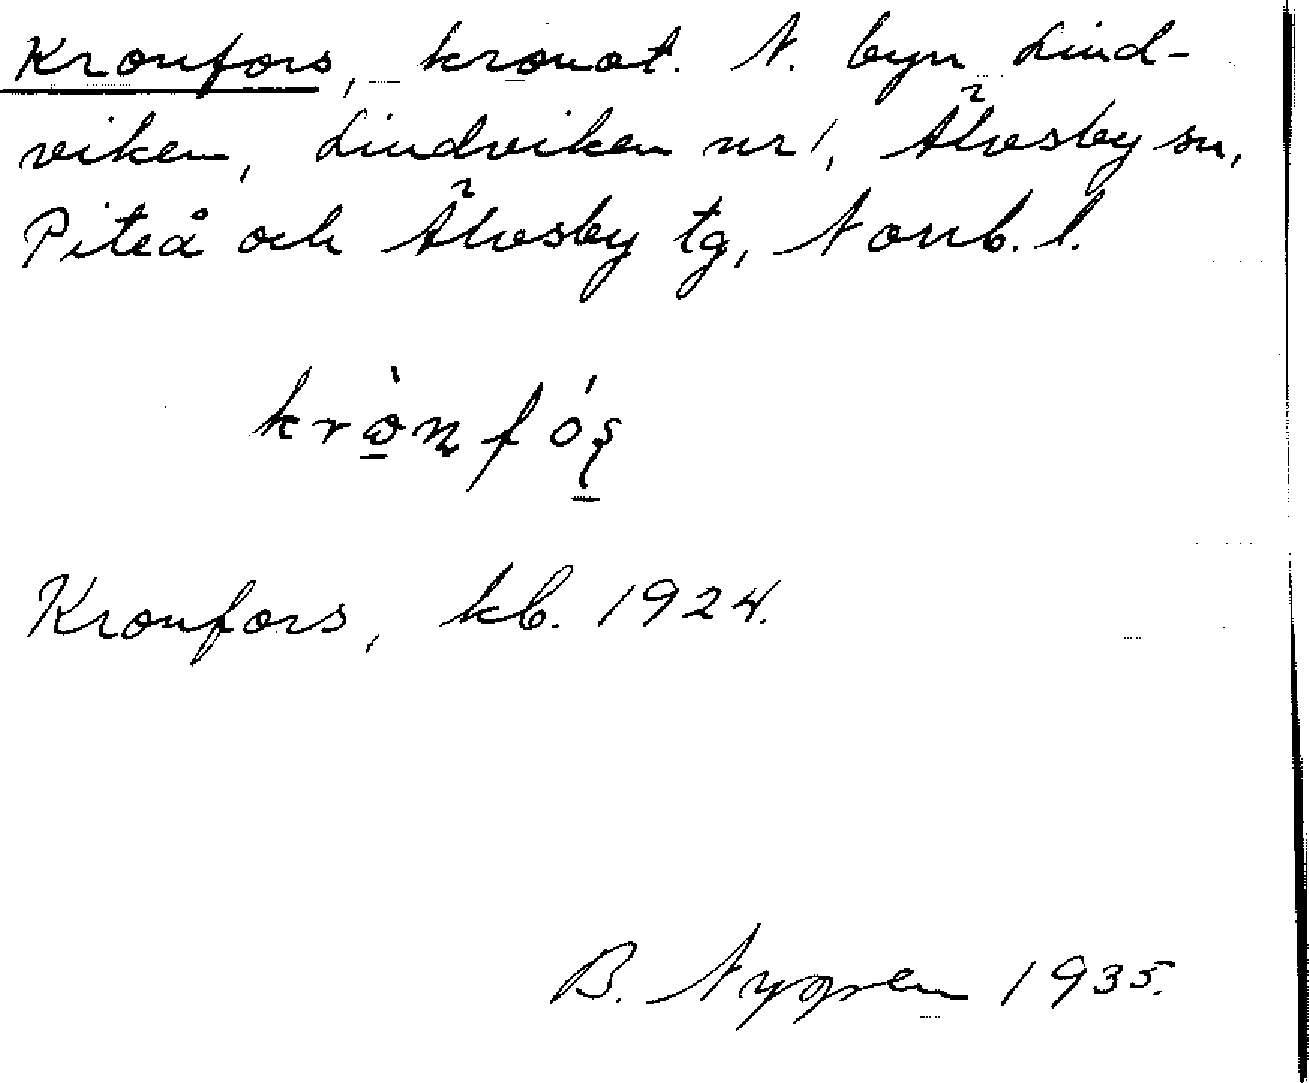 Kronfors, kronot. N. byn Lind-
viken, Lindviken nr 1, Älvsby sn,
Piteå och Älvsby tg, Norrb. l.
krò̱nfó̱ʂ
Kronfors, kb. 1924.
B. Nygren 1935.